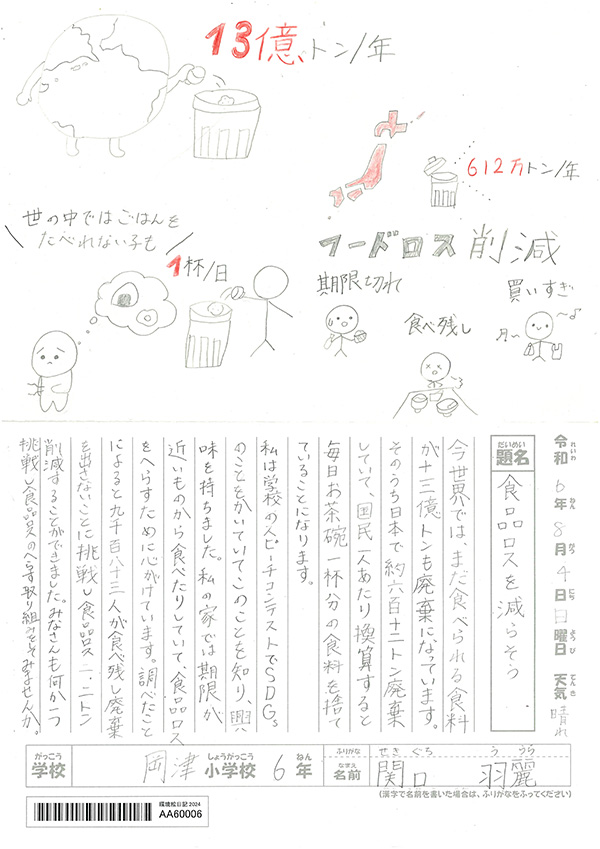 13億トン/年
612万トン/年
世の中ではごはんを
たべれない子も
1杯/日
フードロス削減
期限切れ
買いすぎ
食べ残し
令和6年8月4日日曜日 天気 晴れ
れいわ ねん がつ にち ようび てんき
だいめい
題名 食品ロスを減らそう
今世界では、まだ食べられる食料
が十三億トンも廃棄になっています。
そのうち日本で約六百十二トン廃棄
していて、国民一人あたり換算すると
毎日お茶碗一杯分の食料を捨て
ていることになります。
私は学校のスピーチコンテストでSDGs
のことをかいていてこのことを知り、興
味を持ちました。私の家では期限が
近いものから食べたりしていて、食品ロス
をへらすために心がけています。調べたこと
によると九千百八十三人が食べ残し廃棄
を出さないことに挑戦し食品ロス二.二トン
削減することができました。みなさんも何か一つ
挑戦し食品ロスのへらす取り組みをしてみませんか。
がっこう しょうがっこう ねん
学校 岡津小学校 6年
ふりがな せきぐち うらら
なまえ
名前 関口 羽麗
(漢字で名前を書いた場合は、ふりがなをふってください)
環境絵日記2024
AA60006